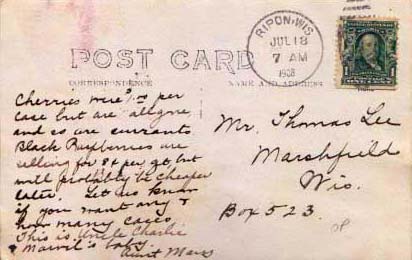 POST CARD
CORRESPONDENCE
NAME AND ADDRESS
RIPON, WIS.
JUL 18
7 AM
1908
1
Cherries were per
case but are all gone
and so are currants
Black Raspberries are
selling for 8¢ per qt, but
will probably be cheaper
later. Let us know
if you want any &
how many cases.
This is Uncle Charlie
baby. Aunt Mary
Mr. Thomas Lee
Marshfield
Wis.
Box 523.